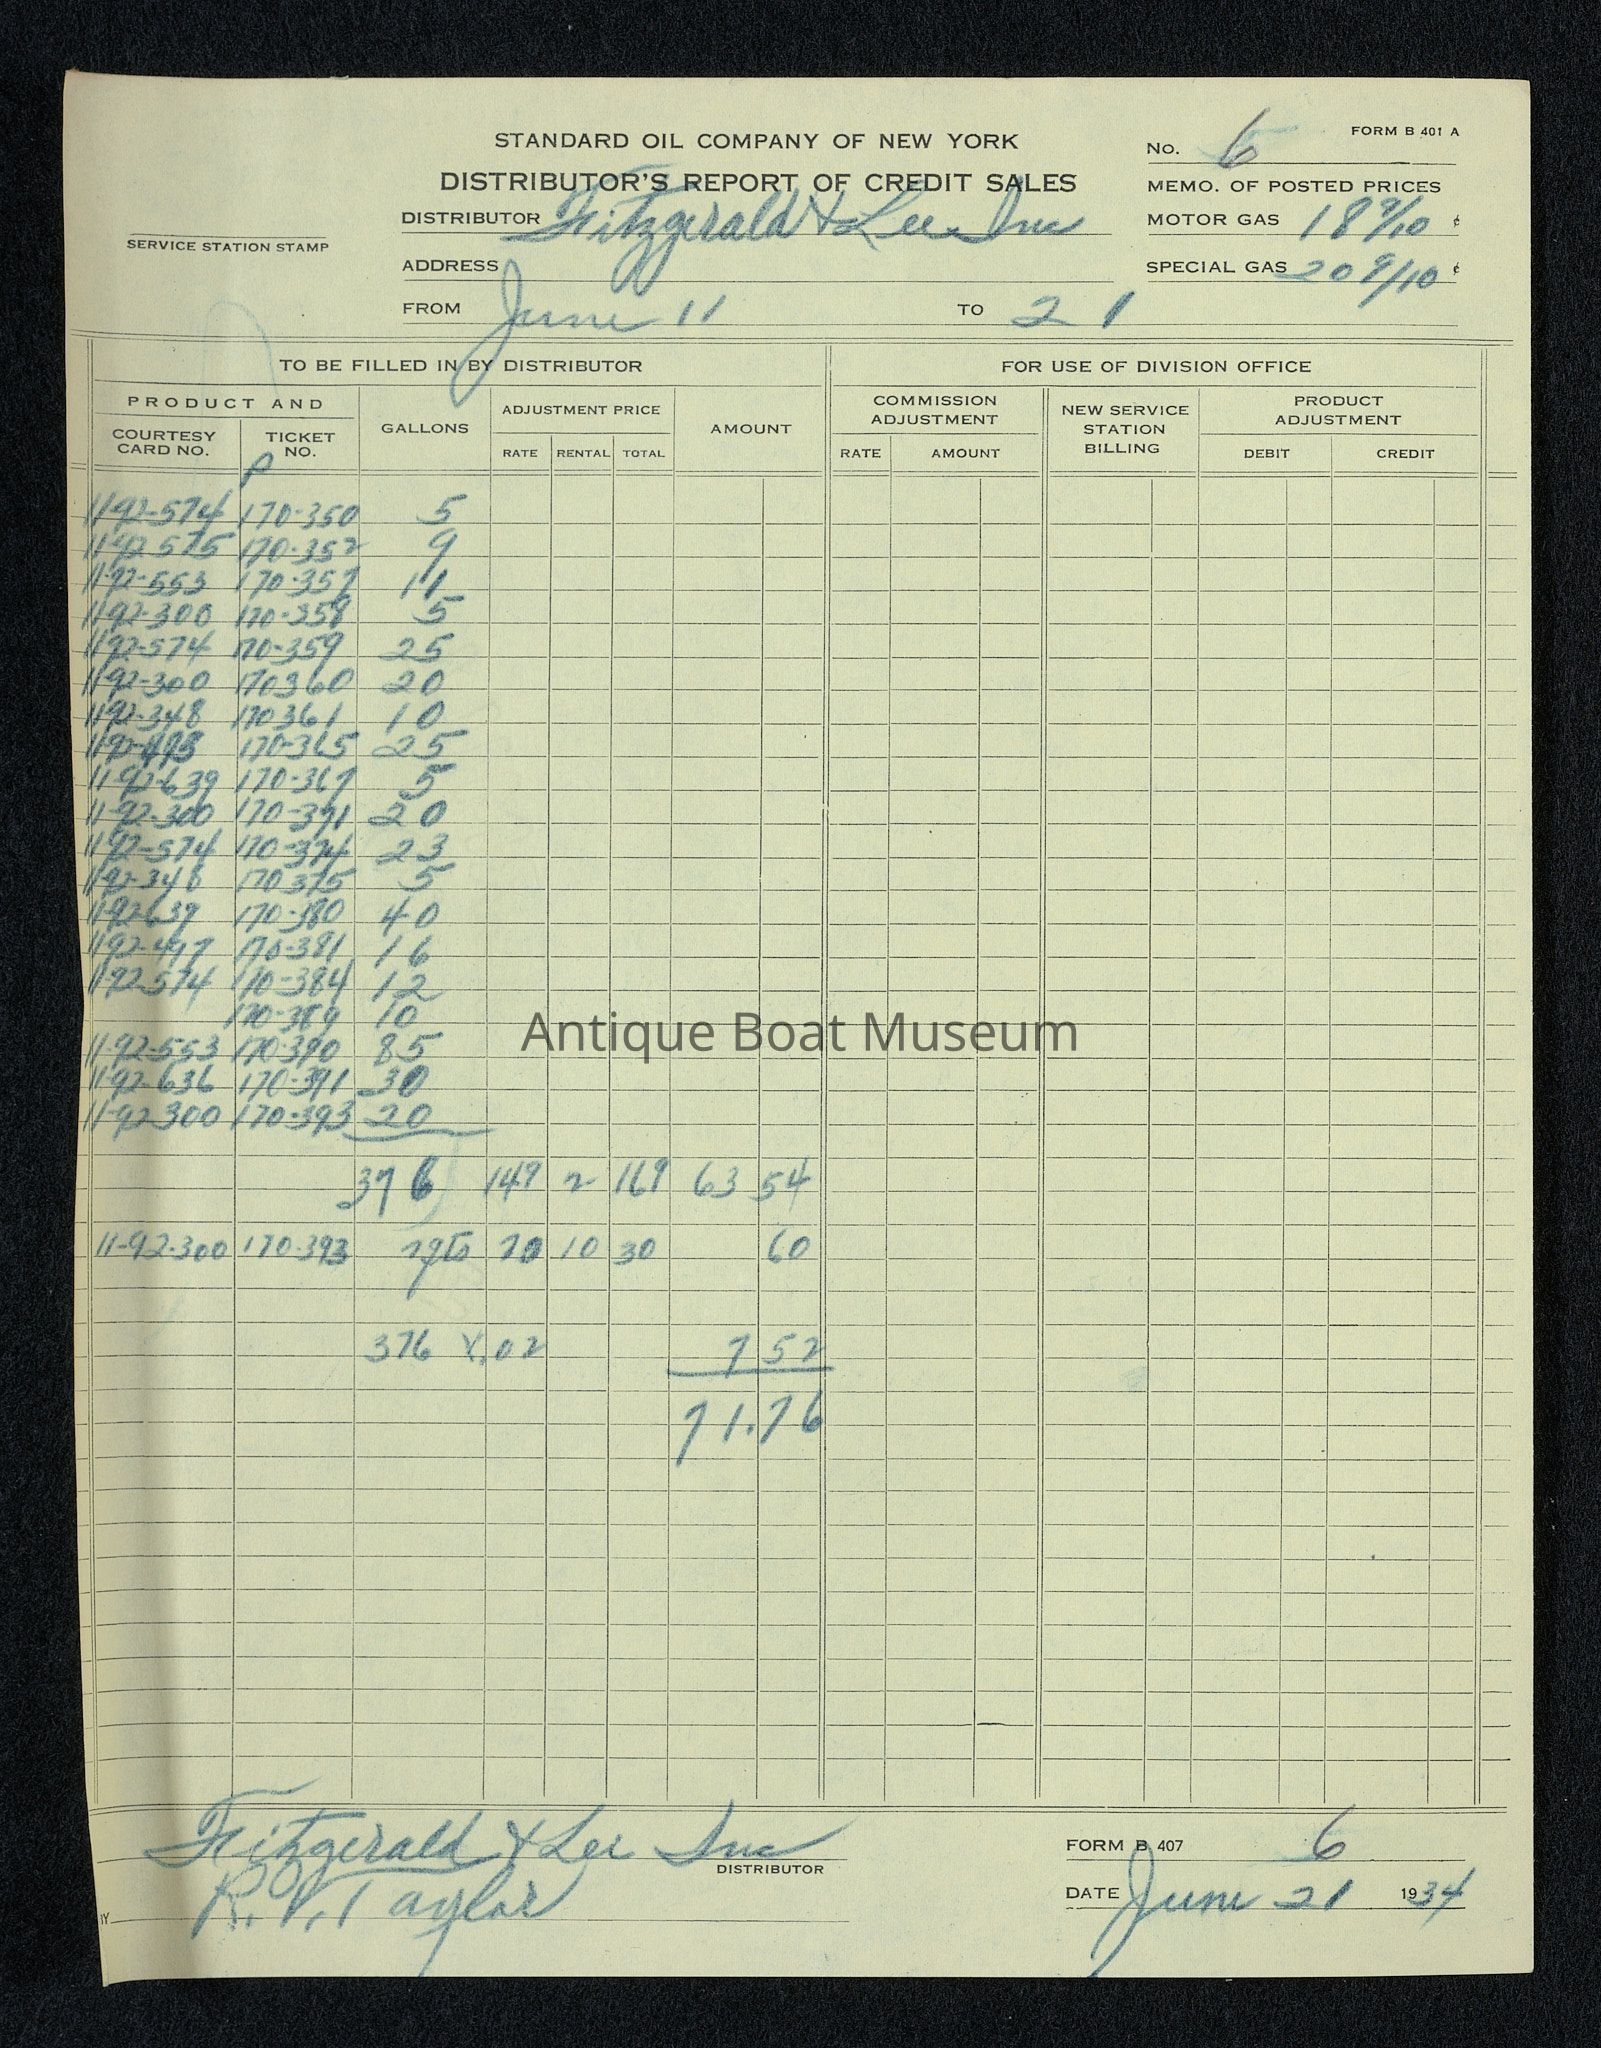 FORM B 401 A
STANDARD OIL COMPANY OF NEW YORK
No. 6
DISTRIBUTOR'S REPORT OF CREDIT SALES
MEMO. OF POSTED PRICES
DISTRIBUTOR Fitzgerald & Lee Inc
MOTOR GAS 18 9/10 ¢
SERVICE STATION STAMP
ADDRESS
SPECIAL GAS 20 9/10 ¢
FROM June 11 TO 21
TO BE FILLED IN BY DISTRIBUTOR FOR USE OF DIVISION OFFICE
PRODUCT AND
COURTESY CARD NO. TICKET NO. GALLONS ADJUSTMENT PRICE AMOUNT COMMISSION ADJUSTMENT NEW SERVICE STATION BILLING PRODUCT ADJUSTMENT
RATE RENTAL TOTAL RATE AMOUNT DEBIT CREDIT
P
1192-574 170-350 5
11-92 575 170-352 9
11-92-553 170-357 11
1192-300 170-358 5
1192-574 170-359 25
1192-300 170360 20
1192-348 170361 10
170-365 25
11-92-639 170-367 5
11-92-300 170-371 20
1192-574 170-374 23
1192-348 170375 5
11-92-639 170-380 40
1192-497 170-381 16
11-92-574 170-384 12
170-389 10
11-92-553 170-390 85
11-92-636 170-391 30
11-92-300 170-393 20
376 149 2 169 63 54
11-92-300 170-393 2 qts 20 10 30 60
376 X.02 7 52
71.76
Antique Boat Museum
Fitzgerald & Lee Inc
DISTRIBUTOR
FORM B 407 6
BY R. V. Taylor
DATE June 21 1934